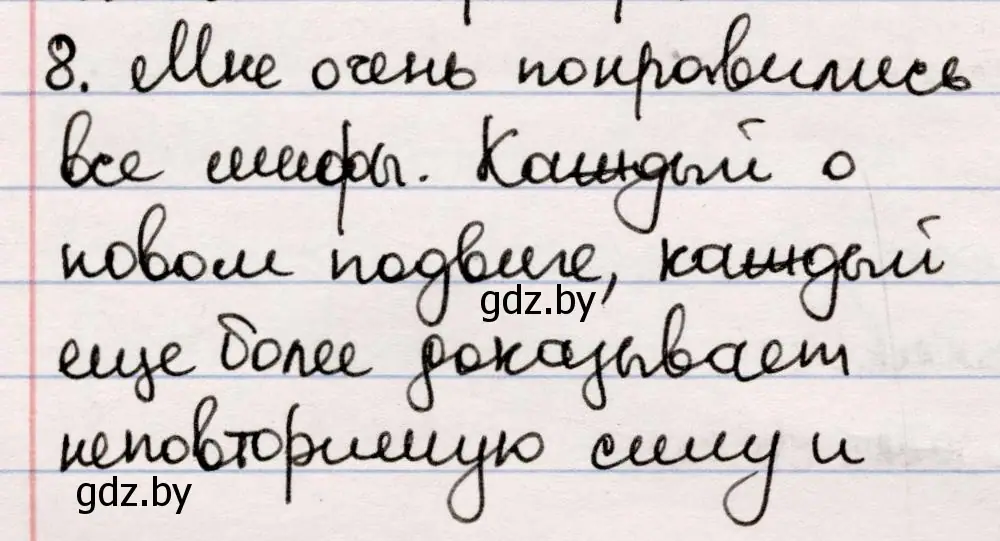 8. Мне очень понравились
все мифы. Каждый о
новом подвиге, каждый
gdz.by
еще более доказывает
неповторимую силу и
gdz.by